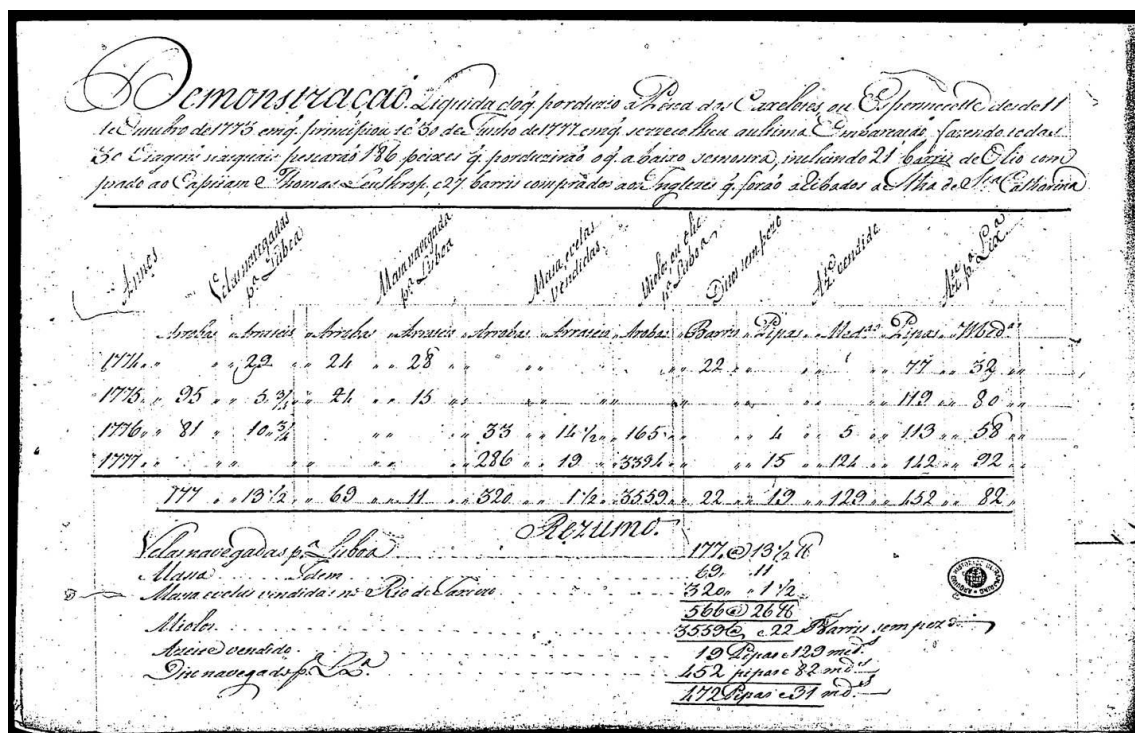 Demonstraçaõ. Liquida do q̃. porduzio a Pesca dos Caxelotes ou Espermacette desde 11
de Outubro de 1773 em q̃. principiou té 30 de Junho de 1777 em q̃. se recolheu a ultima Embarcaçaõ, fazendo todas
30 Viagens nas quais pescaraõ 186 peixes q̃ porduziraõ o q̃. abaixo se mostra, incluindo 21 barris de Olio com
prado ao Capitam Thomas e 27 barris comprados aos Inglezes q̃. foraõ a Ilha de S.ta Catharina
Annos Vellas navegadas p.ª Lisboa Massa navegada p.ª Lisboa Massa, e vellas vendidas. Miolo, ou olio p.ª Lisboa Ditos sem pezo Az.e vendido Az.e p.ª Lix.ª
Arrobas Arrateis Arrobas Arrateis Arrobas Arrateis Arrobas Barris Pipas Med.as Pipas Med.as
1774 29 24 28 22 77 32
1775 95 5 3/4 24 15 119 80
1776 81 10 3/4 33 14 1/2 165 4 5 113 58
1777 286 19 3394 15 124 142 92
177 13 1/2 69 11 320 1 1/2 3559 22 19 129 452 82
Rezumo.
Vellas navegadas p.ª Lisboa 177 @ 13 1/2 ℔
Massa Idem 69 11
Massa e velas vendidas no Rio de Janeiro 320 1 1/2
566 @ 26 ℔
Miolos 3559 @ e 22 Barris sem pezo
Azeite vendido 19 Pipas e 129 med.s
Dito navegado p.ª Lx.ª 452 pipas e 82 md.s
472 Pipas e 31 md.s